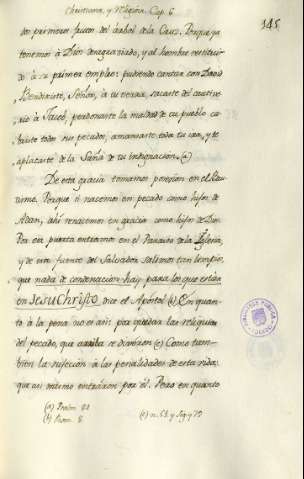 Christiana, y Religiosa. Cap. 6
145
dos primeros frutos del árbol de la Cruz. Porque ya
tenemos à Dios desagraviado, y al hombre restituido
à su primera empleo: pudiendo cantar con David
Bendixiste, Señor, à tu tierra, sacaste del cautive-
rio à Jacob, perdonaste la maldad de tu pueblo cu-
briste todos sus pecados, amansaste toda tu ira, y te
aplacaste de la Saña de tu indignacion. (a)
De esta gracia tomamos posesion en el Bau-
tismo. Porque si nacemos en pecado como hijos de
Adan, ahí renacemos en gracia como hijos de Dios.
Por esa puerta entramos en el Paraiso de la Iglesia,
y de esta fuente del Salvador salimos tan limpios,
que nada de condenacion hay para los que están
en Jesu Christo, dice el Apóstol (b) En quan-
to à la pena no es asi: por quedar las reliquias
del pecado, que arriba se dixeron (c) Como tam-
bien la sujecion à las penalidades de esta vida:
que asi mismo entraron por él. Pero en quanto
(a) Psalm. 84
(b) Rom. 8
(c) n. 68 y sig. y 70